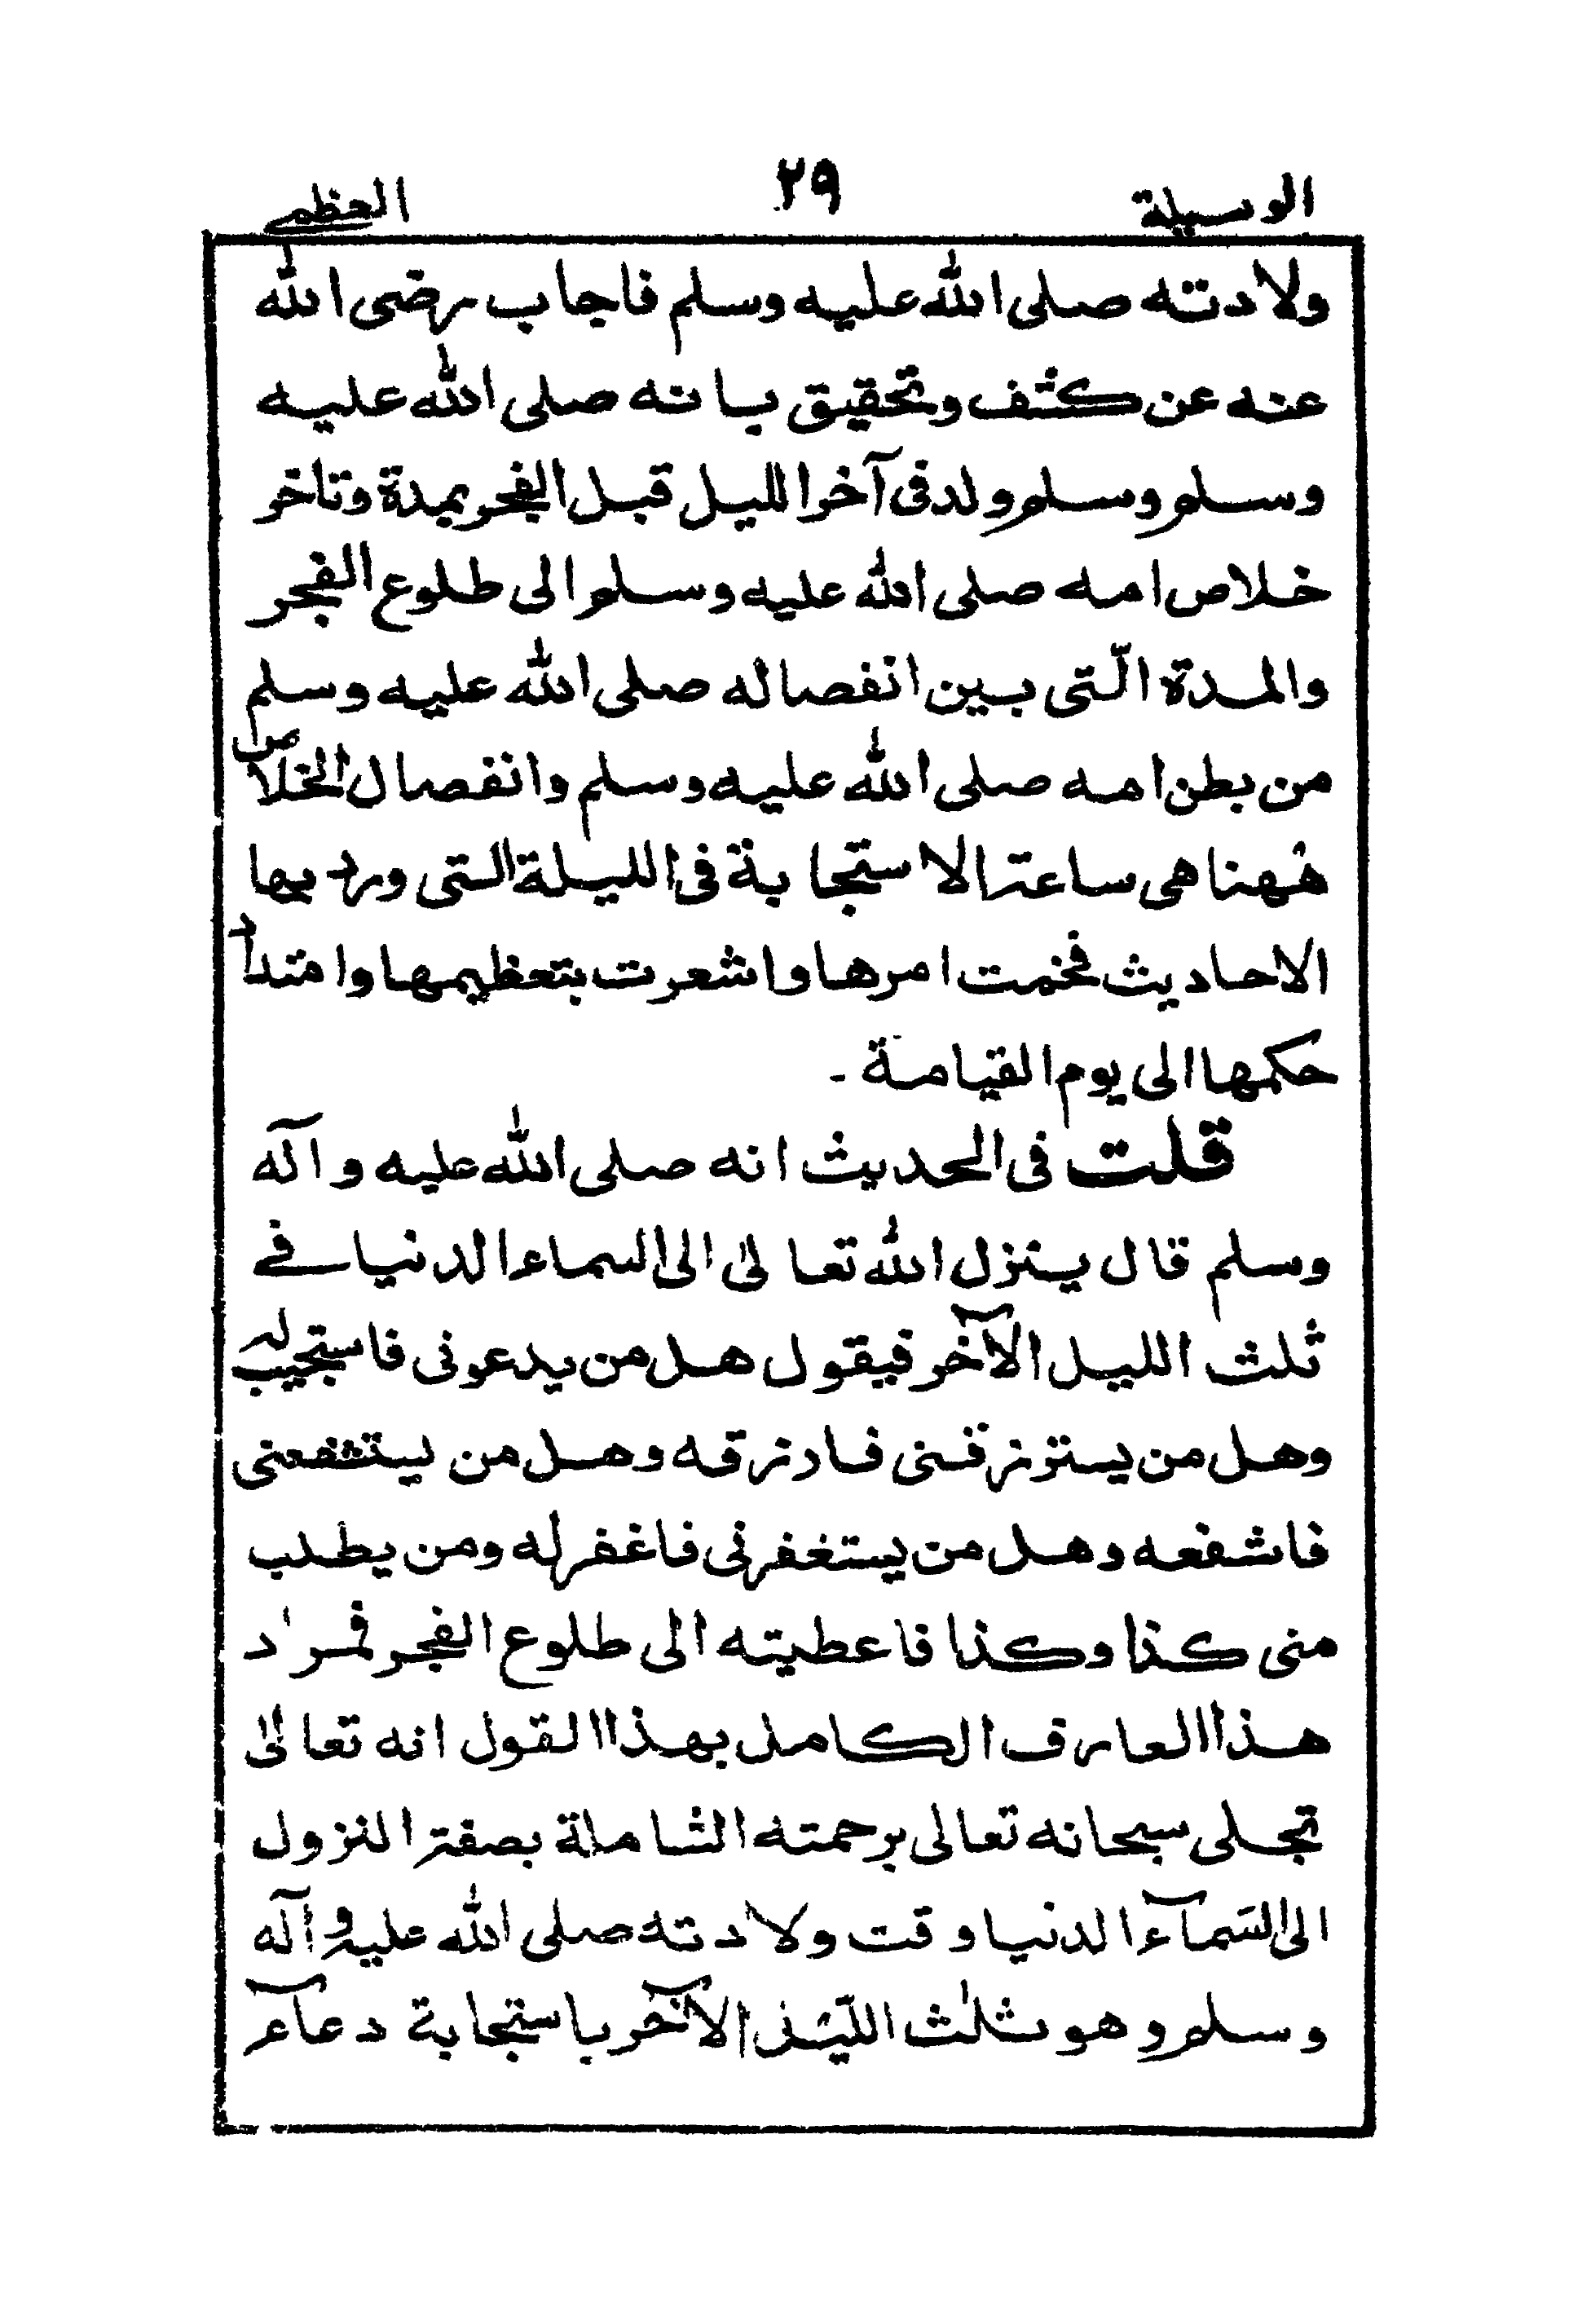 الوسيلة ٢٩ العظمى
ولادته صلى الله عليه وسلم فاجاب رضى الله
عنه عن كشف وتحقيق بانه صلى الله عليه
وسلم وسلم ولد فى آخر الليل قبل الفجر بمدة وتاخر
خلاص امه صلى الله عليه وسلم الى طلوع الفجر
والمدة الّتى بين انفصاله صلى الله عليه وسلم
من بطن امه صلى الله عليه وسلم وانفصال الخلاص
هٰهنا هى ساعة الاستجابة فى الليلة التى ورد بها
الاحاديث فخمت امرها واشعرت بتعظيمها وامتداد
حكمها الى يوم القيامة ۔
قلت فى الحديث انه صلى الله عليه وآله
وسلم قال ينزل الله تعالىٰ الى السماء الدنيا فے
ثلث الليل الآخر فيقول هل من يدعونى فاستجيب له
وهل من يستزرقنى فارزقه وهل من يستشفعنى
فاشفعه وهل من يستغفرنى فاغفرله ومن يطلب
منى كذا وكذا فاعطيته الى طلوع الفجر فمراد
هذا العارف الكامل بهذا القول انه تعالىٰ
تجلى سبحانه تعالى برحمته الشاملة بصفة النزول
الى السّمآء الدنيا وقت ولادته صلى الله عليه وآله
وسلم وهو ثلٰث اللّيل الآخر باستجابة دعآء